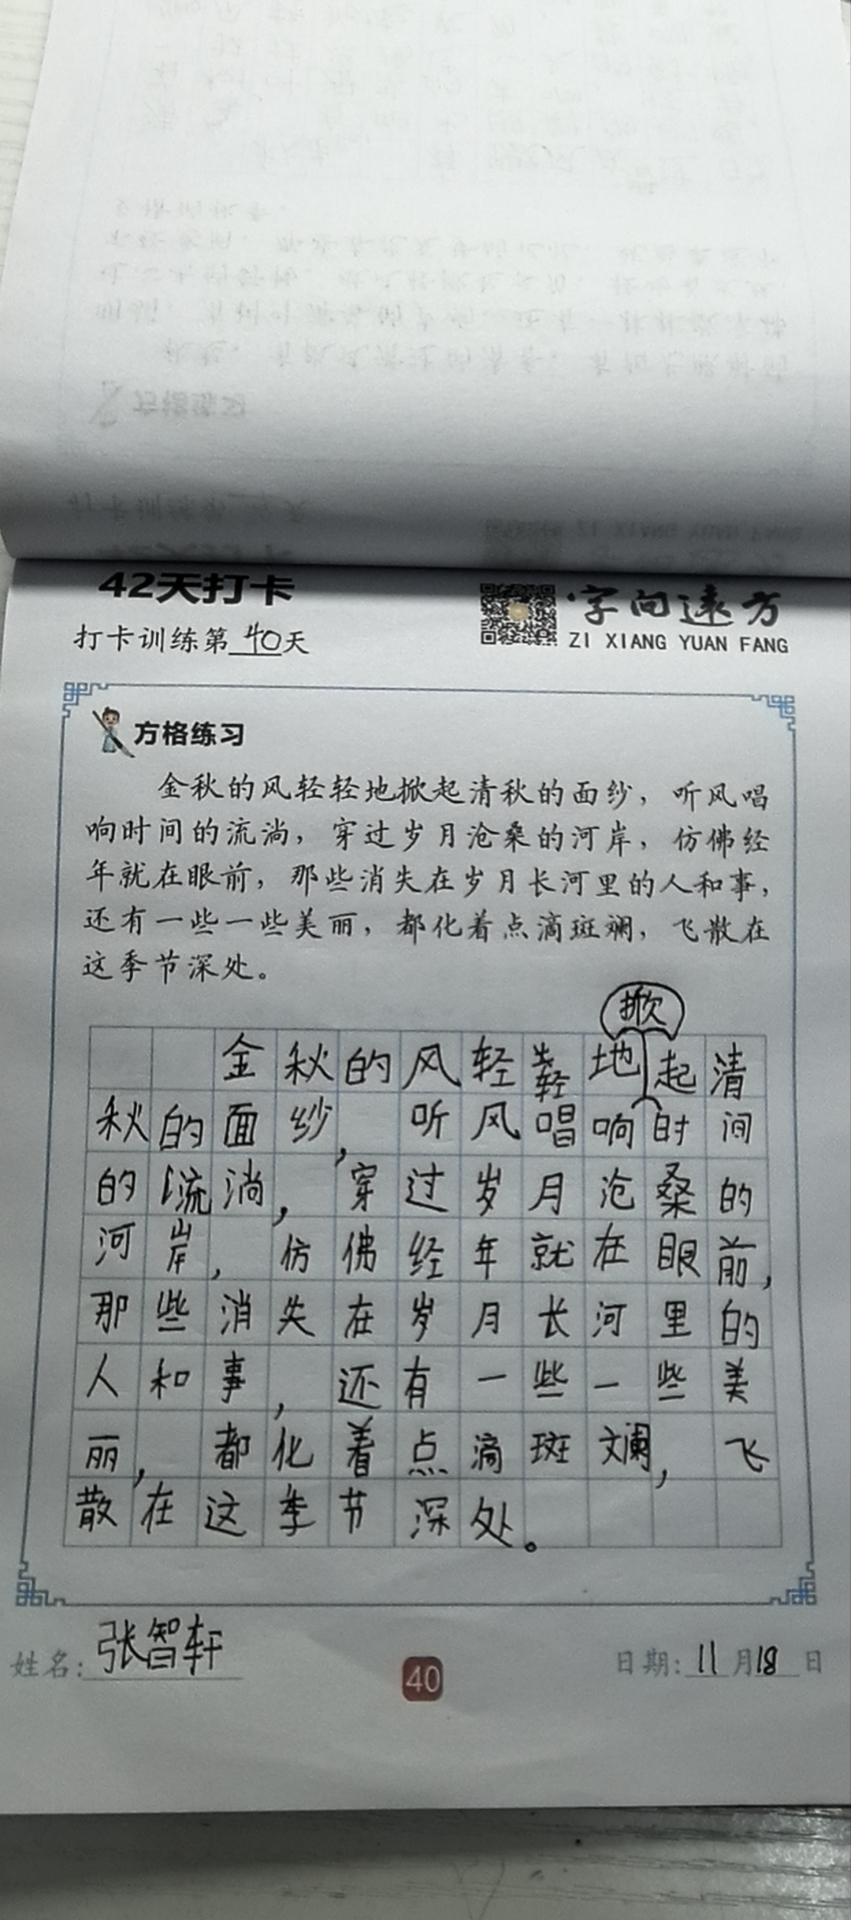 42天打卡
字向远方
打卡训练第40天
ZI XIANG YUAN FANG
方格练习
金秋的风轻轻地掀起清秋的面纱，听风唱
响时间的流淌，穿过岁月沧桑的河岸，仿佛经
年就在眼前，那些消失在岁月长河里的人和事，
还有一些一些美丽，都化着点滴斑斓，飞散在
这季节深处。
掀
金秋的风轻轻地起清
秋的面纱，听风唱响时间
的流淌，穿过岁月沧桑的
河岸，仿佛经年就在眼前，
那些消失在岁月长河里的
人和事，还有一些一些美
丽，都化着点滴斑斓，飞
散在这季节深处。
姓名：张智轩
40
日期：11月18日